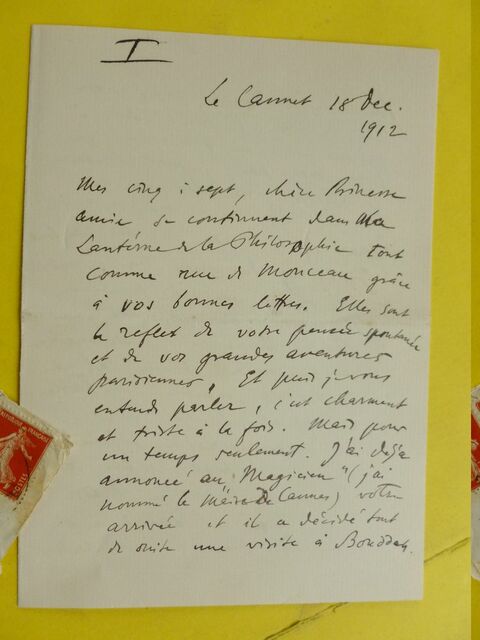 I
Le Cannet 18 Dec.
1912
Mes cinq à sept, chère Princesse
amie se continuent dans ma
Lanterne de la Philosophie tout
comme rue de Monceau grâce
à vos bonnes lettres. Elles sont
le reflet de votre pensée spontanée
et de vos grandes aventures
parisiennes. Et puis je vous
entends parler, c'est charmant
et triste à la fois. Mais pour
un temps seulement. J'ai déjà
annoncé au "Magicien" (j'ai
nommé le Maire de Cannes) votre
arrivée et il a décidé tout
de suite une visite à Bouddah.
FRANÇAISE
POSTES